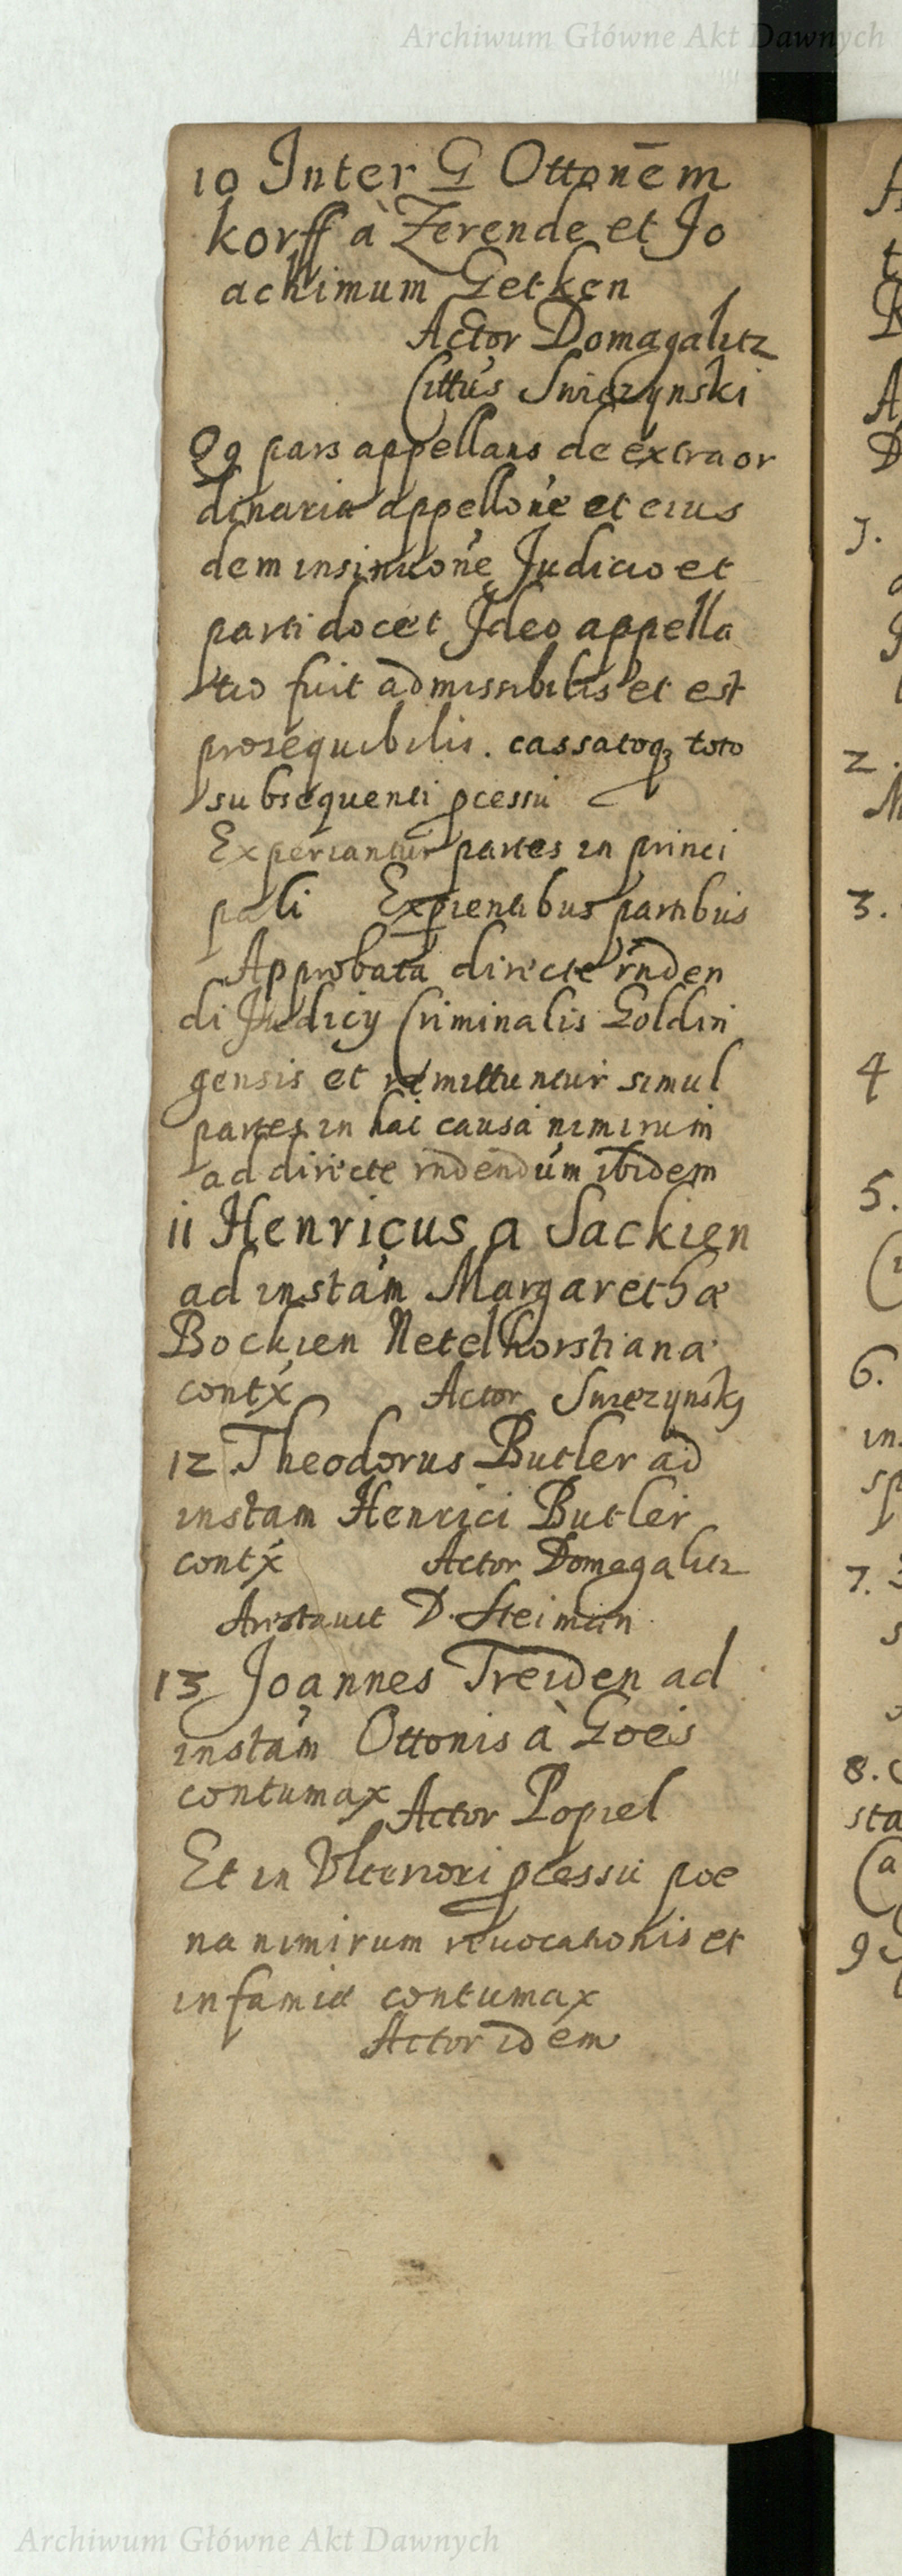 Archiwum Główne Akt Dawnych
10 Inter G Ottonēm
korff à Zerende et Jo
achimum Getken
Actor Domagalitz
Cittús Swiezynski
Qq pars appellans de extraor
dinaria appellone et eius
dem insinuone Judicio et
parti docet Ideo appella
tio fuit admissibilis et est
prosequibilis. cassatoq3 toto
subsequenti pcessu
Experiantur partes in princi
pali Expientibus partibus
Approbata directe rnden
di Judicij Criminalis Goldin
gensis et remittuntur simul
partes in hac causa nimirum
ad directe rndendum ibidem
11 Henricus a Sackien
ad instam Margarethæ
Bockien Netelhorstiana
contx Actor Swiezynskj
12 Theodorus Butler ad
instam Henrici Butler
contx Actor Domagalitz
Arestauit D. Heiman
13 Joannes Treiden ad
instam Ottonis à Goes
contumax Actor Popiel
Et in Vlteriori pcessu poe
na nimirum reuocationis et
infamiæ contumax
Actor idem
1.
2.
3.
4
5.
6.
in
sp
7.
8.
sta
(a
9
Archiwum Główne Akt Dawnych